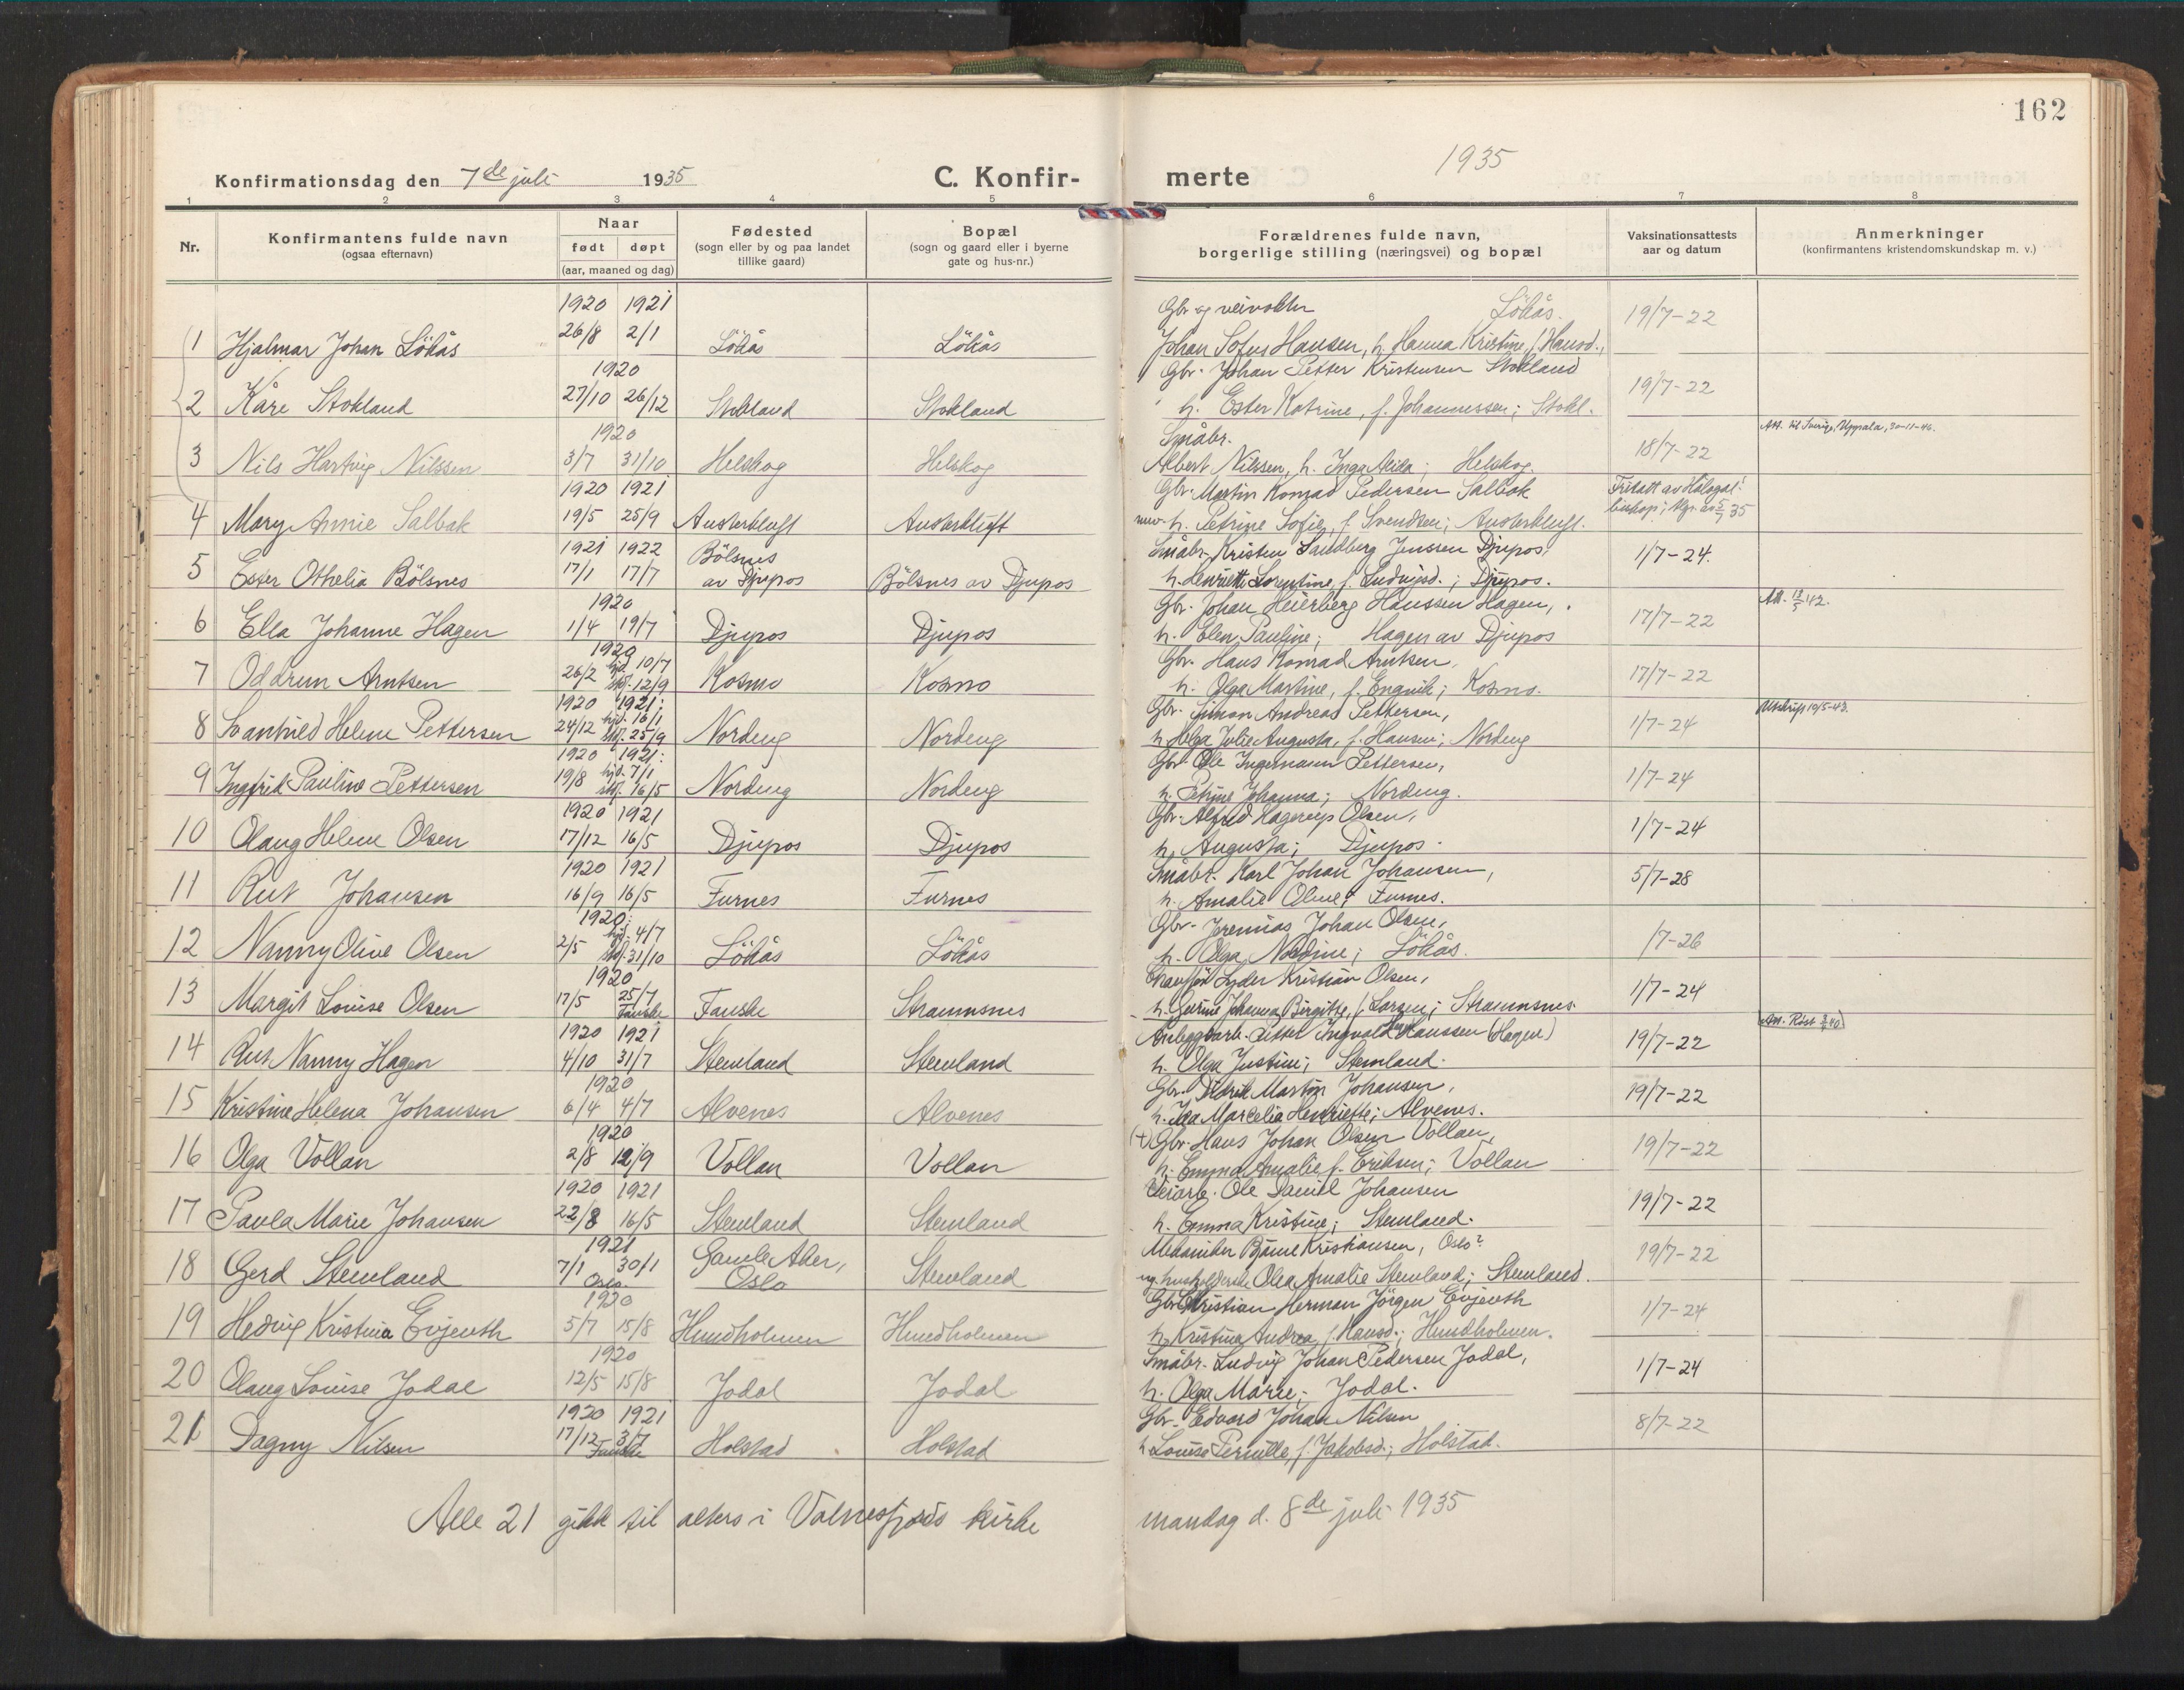 162
Konfirmationsdag den 7de juli 1935 C. Konfir-
merte 1935
1 2 3 4 5 6 7 8
Nr.
Konfirmantens fulde navn
(ogsaa efternavn)
Naar
født døpt
(aar, maaned og dag)
Fødested
(sogn eller by og paa landet
tillike gaard)
Bopæl
(sogn og gaard eller i byerne
gate og hus-nr.)
Forældrenes fulde navn,
borgerlige stilling (næringsvei) og bopæl
Vaksinationsattests
aar og datum
Anmerkninger
(konfirmantens kristendomskundskap m. v.)
1920 1921
Gbr og veivokter Løkås.
1 Hjalmar Johan Løkås 26/8 2/1 Løkås Løkås
Johan Sofus Hansen, h. Hanna Kristine, f. Hansd., 19/7-22
1920
Gbr. Johan Petter Kristensen Stokland
2 Kåre Stokland 27/10 26/12 Stokland Stokland
h. Ester Katrine, f. Johannessen; Stokl. 19/7-22
Att. til Sverige, Uppsala, 30-11-46.
1920
Småbr.
3 Nils Hartvig Nilssen 3/7 31/10 Helskog Helskog
Albert Nilssen, h. Inga Alida; Helskog. 18/7-22
1920 1921
Gbr. Martin Konrad Pedersen Salbak
4 Mary Annie Salbak 19/5 25/9 Austerkluft Austerkluft
h. Petrine Sofie, f. Svendsen; Austerkluft.
Fritatt av Hålogal.
biskop; 35
1921 1922 Bölsnes
Småbr. Kristen Sandberg Jenssen Djupos,
5 Ester Othelia Bölsnes 17/1 17/7 av Djupos Bölsnes av Djupos
h. Henriette Lorentine, f. Ludvigsd.; Djupos. 1/7-24.
1920
Gbr. Johan Heierberg Hanssen Hagen,
6 Ella Johanne Hagen 1/4 19/7 Djupos Djupos
h. Elen Pauline; Hagen av Djupos 17/7-22
Att. 18/5 42.
1920
Gbr. Hans Konrad Arntsen,
7 Oddrun Arntsen 26/2 hjd. 10/7 stf. 12/9 Kosmo Kosmo
h. Olga Martine, f. Engvik; Kosmo. 17/7-22
1920 1921:
Gbr. Simon Andreas Pettersen,
8 Svanhild Helene Pettersen 24/12 hjd. 16/1 stf. 25/9 Nordeng Nordeng
h. Helga Julie Augusta, f. Hansen; Nordeng 1/7-24
Utskrift 19/5-43.
1920 1921:
Gbr. Ole Ingemann Pettersen,
9 Ingfrid Pauline Pettersen 19/8 hjd. 7/1 stf. 16/5 Nordeng Nordeng
h. Petrine Johanna; Nordeng. 1/7-24
1920 1921
Gbr. Alfred Hagerup Olsen,
10 Olaug Helene Olsen 17/12 16/5 Djupos Djupos
h. Augusta; Djupos. 1/7-24
1920 1921
Småbr. Karl Johan Johansen,
11 Rut Johansen 16/9 16/5 Furnes Furnes
h. Amalie Oline; Furnes. 5/7-28
1920:
Gbr. Jeremias Johan Olsen,
12 Nanny Olive Olsen 2/5 hjd. 4/7 stf. 31/10 Løkås Løkås
h. Olga Nordine; Løkås. /7-26
1920
Chauffør Lyder Kristian Olsen,
13 Margit Louise Olsen 17/5 25/7 Fauske Fauske Straumsnes
h. Gurine Johanna Birgitte, f. Larsen; Straumsnes. 1/7-24
1920 1921
Anleggsarb. Petter Ingvald Hanssen (Hagen)
14 Rut Nanny Hagen 4/10 31/7 Stemland Stemland
h. Olga Justine; Stemland. 19/7-22
Att. Røst 40
1920
Gbr. Didrik Martin Johansen,
15 Kristine Helena Johansen 6/4 4/7 Alvenes Alvenes
h. Ida Marcelia Henriette; Alvenes. 19/7-22
1920
(+) Gbr. Hans Johan Olsen Vollan,
16 Olga Vollan 2/8 12/9 Vollan Vollan
h. Emma Amalie f. Eriksen; Vollan 19/7-22
1920 1921
Veiarb. Ole Daniel Johansen
17 Paula Marie Johansen 22/8 16/5 Stemland Stemland
h. Emma Kristine; Stemland. 19/7-22
1921 Gamle Aker,
Mekaniker Bjarne Kristiansen, Oslo?
18 Gerd Stemland 7/1 30/1 Oslo. Oslo Stemland
ug. husholderske Olea Amalie Stemland; Stemland. 19/7-22
1920
Gbr. Kristian Herman Jörgen Evjenth
19 Hedvig Kristina Evjenth 5/7 15/8 Hundholmen Hundholmen
h. Kristina Andrea, f. Hansd.; Hundholmen. 1/7-24
1920
Småbr. Ludvig Johan Pedersen Jodal,
20 Olaug Louise Jodal 12/5 15/8 Jodal Jodal
h. Olga Marie; Jodal. 1/7-24
1920 1921
Gbr. Edvard Johan Nilsen
21 Dagny Nilsen 17/12 3/7 Fauske Holstad Holstad
h Louise Pernille, f. Jakobsd.; Holstad. 8/7-22
Alle 21 gikk til alters i Valnesfjords kirke mandag d. 8de juli 1935